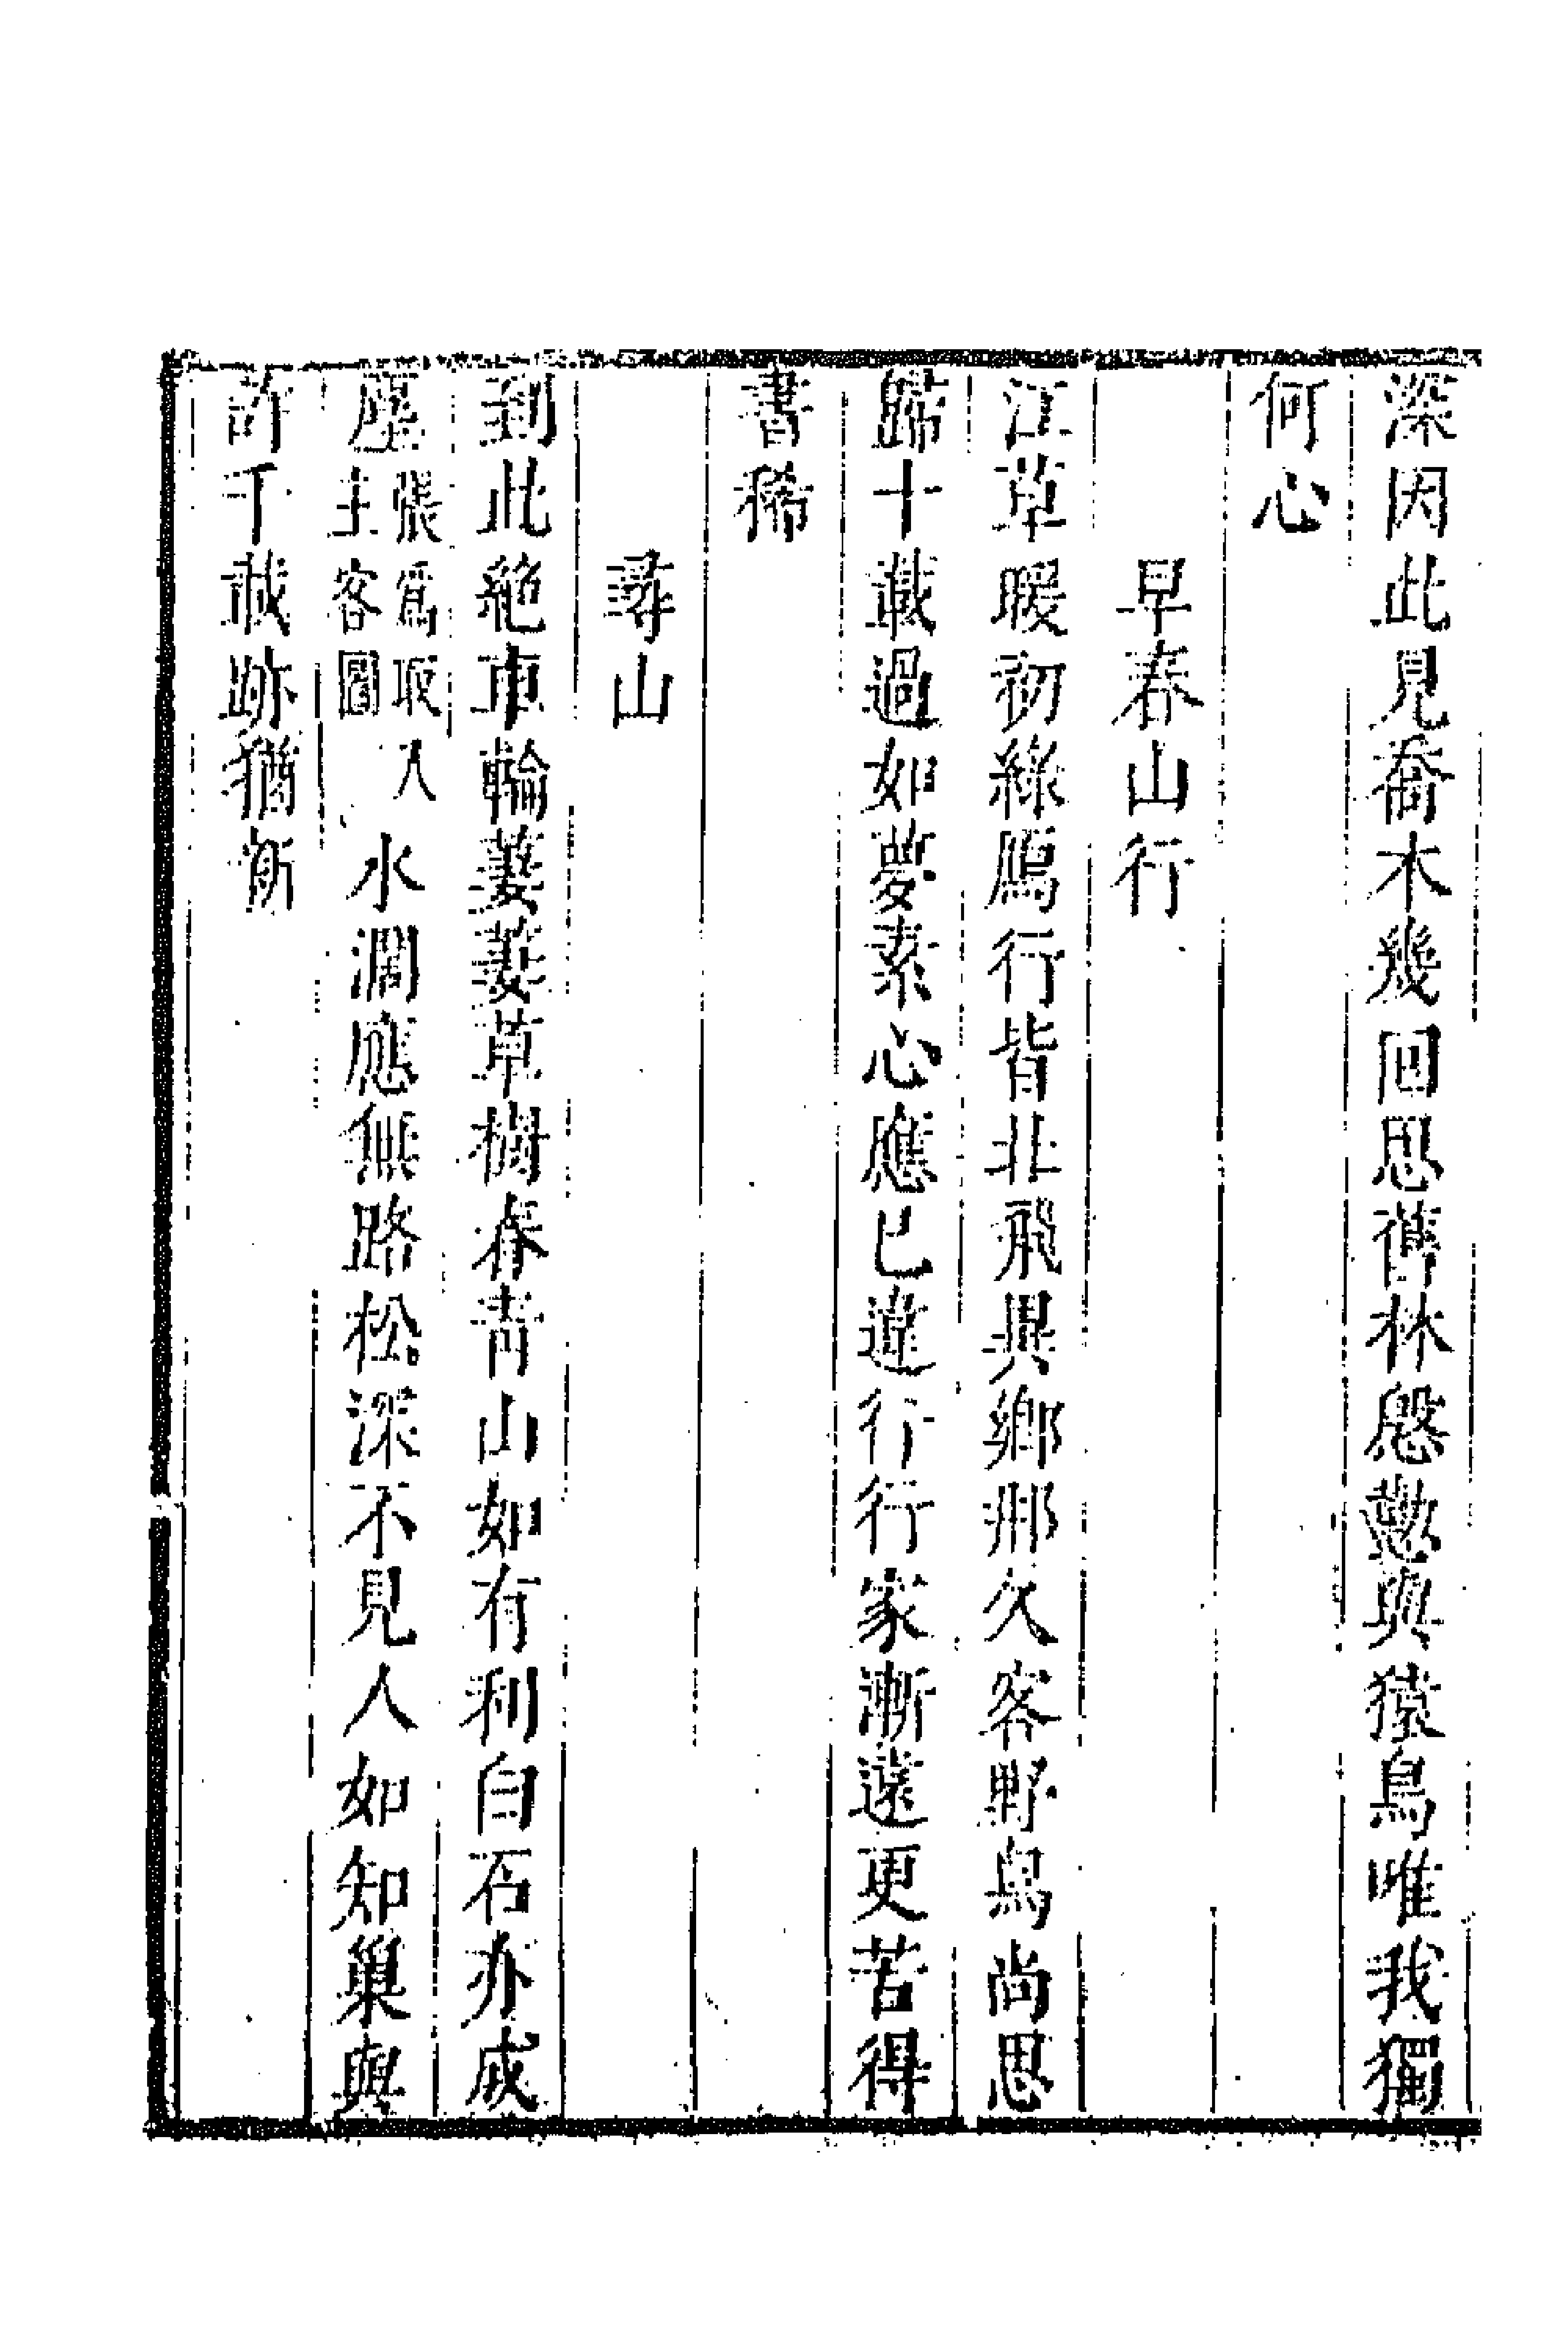 深因此見喬木幾回思舊林慇懃與猿鳥唯我獨
何心
早春山行
江草暖初綠鴈行皆北飛異鄉那久客野鳥尚思
歸十載過如夢素心應已違行行家漸遠更苦得
書稀
尋山
到此絕車輪萋萋草樹春青山如有利白石亦成
塵張爲取入主客圖水濶應無路松深不見人如知巢與
許千載跡猶新